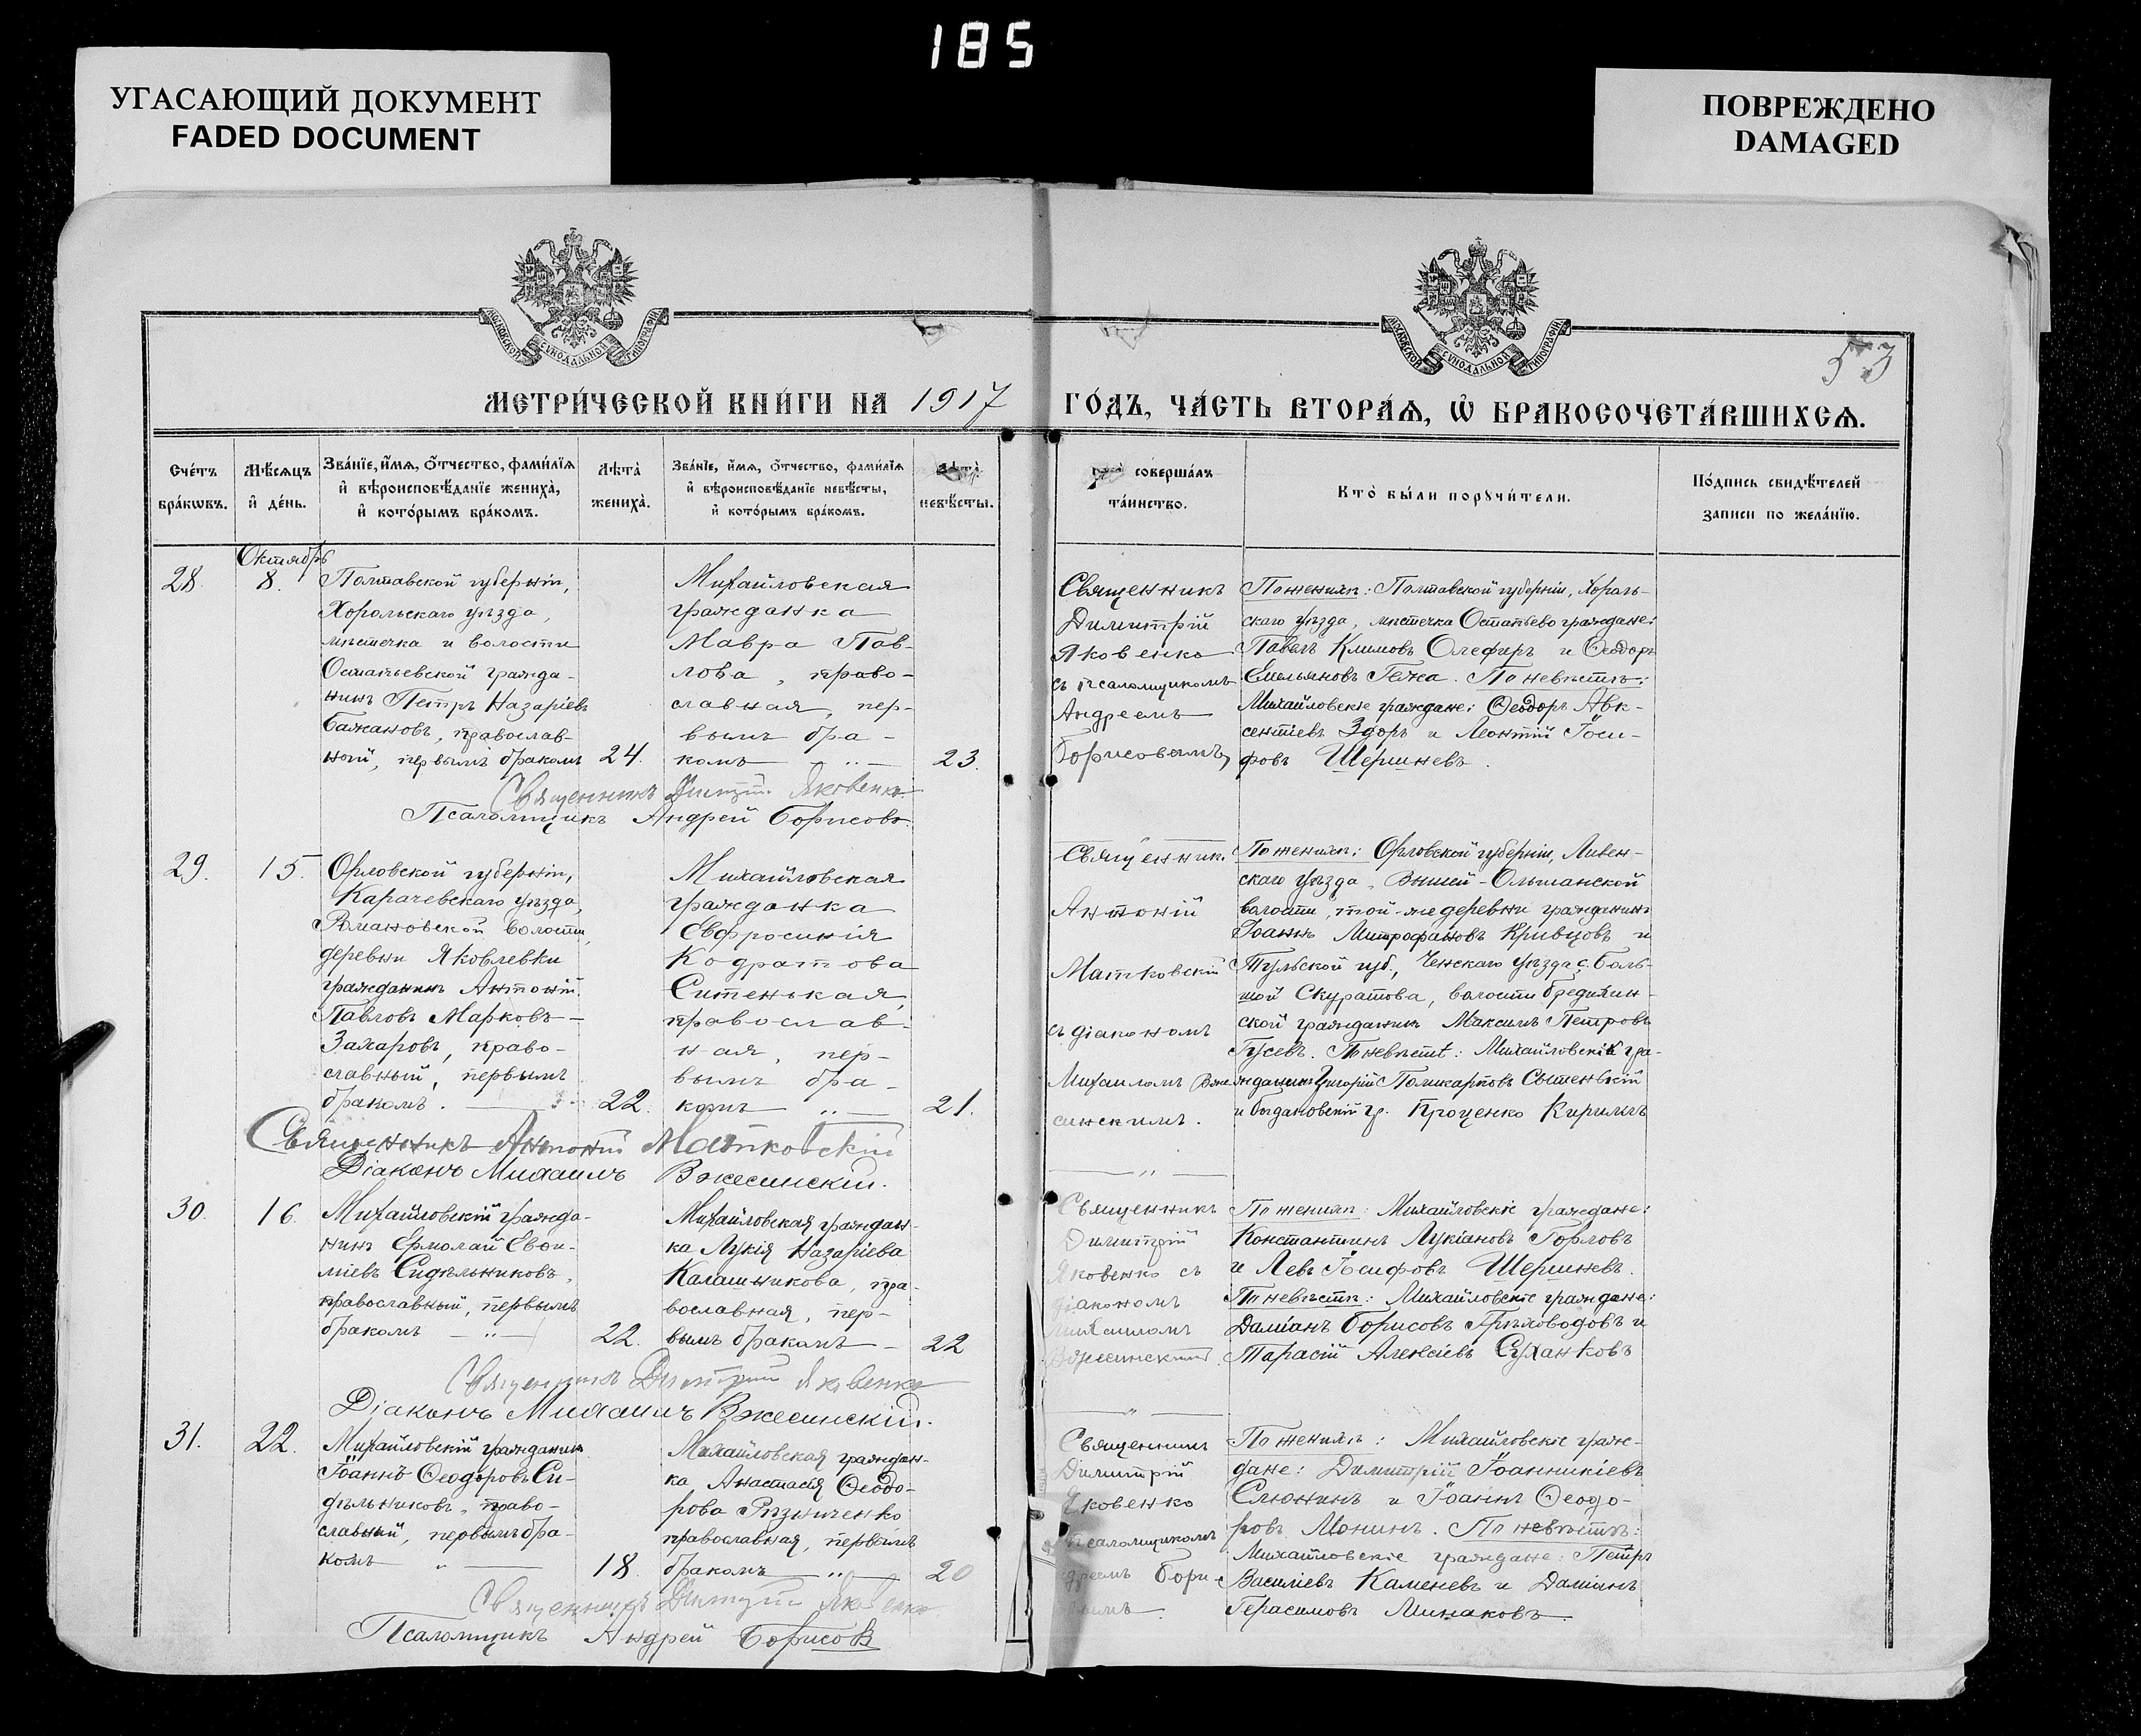 185
УГАСАЮЩИЙ ДОКУМЕНТ
FADED DOCUMENT
ПОВРЕЖДЕНО
DAMAGED
МОСКОВСКОЙ СѴНОДАЛЬНОЙ ТИПОГРАФІИ
МОСКОВСКОЙ СѴНОДАЛЬНОЙ ТИПОГРАФІИ
53
МЕТРИ́ЧЕСКОЙ КНИ́ГИ НА 1917 ГО́ДЪ, ЧА́СТЬ ВТОРА́Ѧ, Ѽ БРАКОСОЧЕТА́ВШИХСѦ.
Сче́тъ
бра́кѡвъ.
Мѣ́сѧцъ
и҆ де́нь.
Зва́нїе, и҆́мѧ, ѻ҆́тчество, фами́лїѧ
и҆ вѣроисповѣ́данїе жениха̀,
и҆ кото́рымъ бра́комъ.
Лѣ́та
жениха̀.
Зва́нїе, и҆́мѧ, ѻ҆́тчество, фами́лїѧ
и҆ вѣроисповѣ́данїе невѣ́сты,
и҆ кото́рымъ бра́комъ.
Лѣ́та
невѣ́сты.
соверша́лъ
та́инство.
Кто̀ бы́ли порꙋчи́тели.
По́дпись свидѣ́телей
записи по жела́нїю.
Октябрь
28.
8.
Полтавской губерніи,
Хорольскаго уѣзда,
мѣстечка и волости
Остапьевской гражда-
нинъ Петръ Назаріевъ
Бажановъ, православ-
ный, первымъ бракомъ
24.
Михайловская
гражданка
Мавра Пав-
лова, право-
славная, пер-
вымъ бра-
комъ — „ —
23.
Священникъ
Димитрій
Яковенко
съ псаломщикомъ
Андреемъ
Борисовымъ
По женихѣ: Полтавской губерніи, Хороль-
скаго уѣзда, мѣстечка Остапьево граждане:
Павелъ Климовъ Олефиръ и Ѳеодоръ
Емельяновъ Гежа. По невѣстѣ:
Михайловскіе граждане: Ѳеодоръ Авк-
сентіевъ Здоръ и Леонтій Іоси-
фовъ Шершневъ.
Священникъ Димитрій Яковенко
Псаломщикъ Андрей Борисовъ.
29.
15.
Орловской губерніи,
Карачевскаго уѣзда,
Романовской волости,
деревни Яковлевки
гражданинъ Антоній
Павловъ Марковъ-
Захаровъ, право-
славный, первымъ
бракомъ.
22.
Михайловская
гражданка
Евфросинія
Кодратова
Ситенькая,
православ-
ная, пер-
вымъ бра-
комъ — „ —
21.
Священник.
Антоній
Матковскій
съ діакономъ
Михаиломъ Вже-
синскимъ.
— „ —
По женихѣ: Орловской губерніи, Ливен-
скаго уѣзда, Вышей-Ольшанской
волости, той-же деревни гражданинъ
Іоаннъ Митрофановъ Кривцовъ и
Тульской губ., Ченскаго уѣзда с. Боль-
шой Скуратова, волости
ской гражданинъ Максимъ Петровъ
Гусевъ. По невѣстѣ: Михайловскій гра-
жданинъ Григорій Поликарповъ Сытенькій
и Богдановскій гр. Проценко Кириллъ
Священникъ Антоній Матковскій
Діаконъ Михаилъ Вжесинскій.
30.
16.
Михайловскій гражда-
нинъ Ермолай Евѳи-
міевъ Сидѣльниковъ,
православный, первымъ
бракомъ — „ —
22.
Михайловская граждан-
ка Лукія Назаріева
Калашникова, пра-
вославная, пер-
вымъ бракомъ —
22
Священникъ
Димитрій
Яковенко съ
діакономъ
Михаиломъ
Вжесинскимъ.
— „ —
По женихѣ: Михайловскіе граждане:
Константинъ Лукіановъ Горловъ
и Левъ Іосифовъ Шершневъ.
По невѣстѣ: Михайловскіе граждане:
Даміанъ Борисовъ Грѣховодовъ и
Тарасій Алексіевъ Суханковъ
Священникъ Димитрій Яковенко
Діаконъ Михаилъ Вжесинскій.
31.
22.
Михайловскій гражданин
Іоаннъ Ѳеодоровъ Си-
дѣльниковъ, право-
славный, первымъ бра-
комъ „ —
18.
Михайловская граждан-
ка Анастасія Ѳеодо-
рова Рѣзниченко
православная, первымъ
бракомъ — „ —
20
Священникъ
Димитрій
Яковенко
псаломщикомъ
дреемъ Бори-
вымъ.
По женихѣ: Михайловскіе граж-
дане: Димитрій Іоанникіевъ
Слюнинъ и Іоаннъ Ѳеодо-
ровъ Монинъ. По невѣстѣ:
Михайловскіе граждане: Петръ
Василіевъ Каменевъ и Даміанъ
Герасимовъ Минаковъ
Священникъ Димитрій Яковенко
Псаломщикъ Андрей Борисовъ